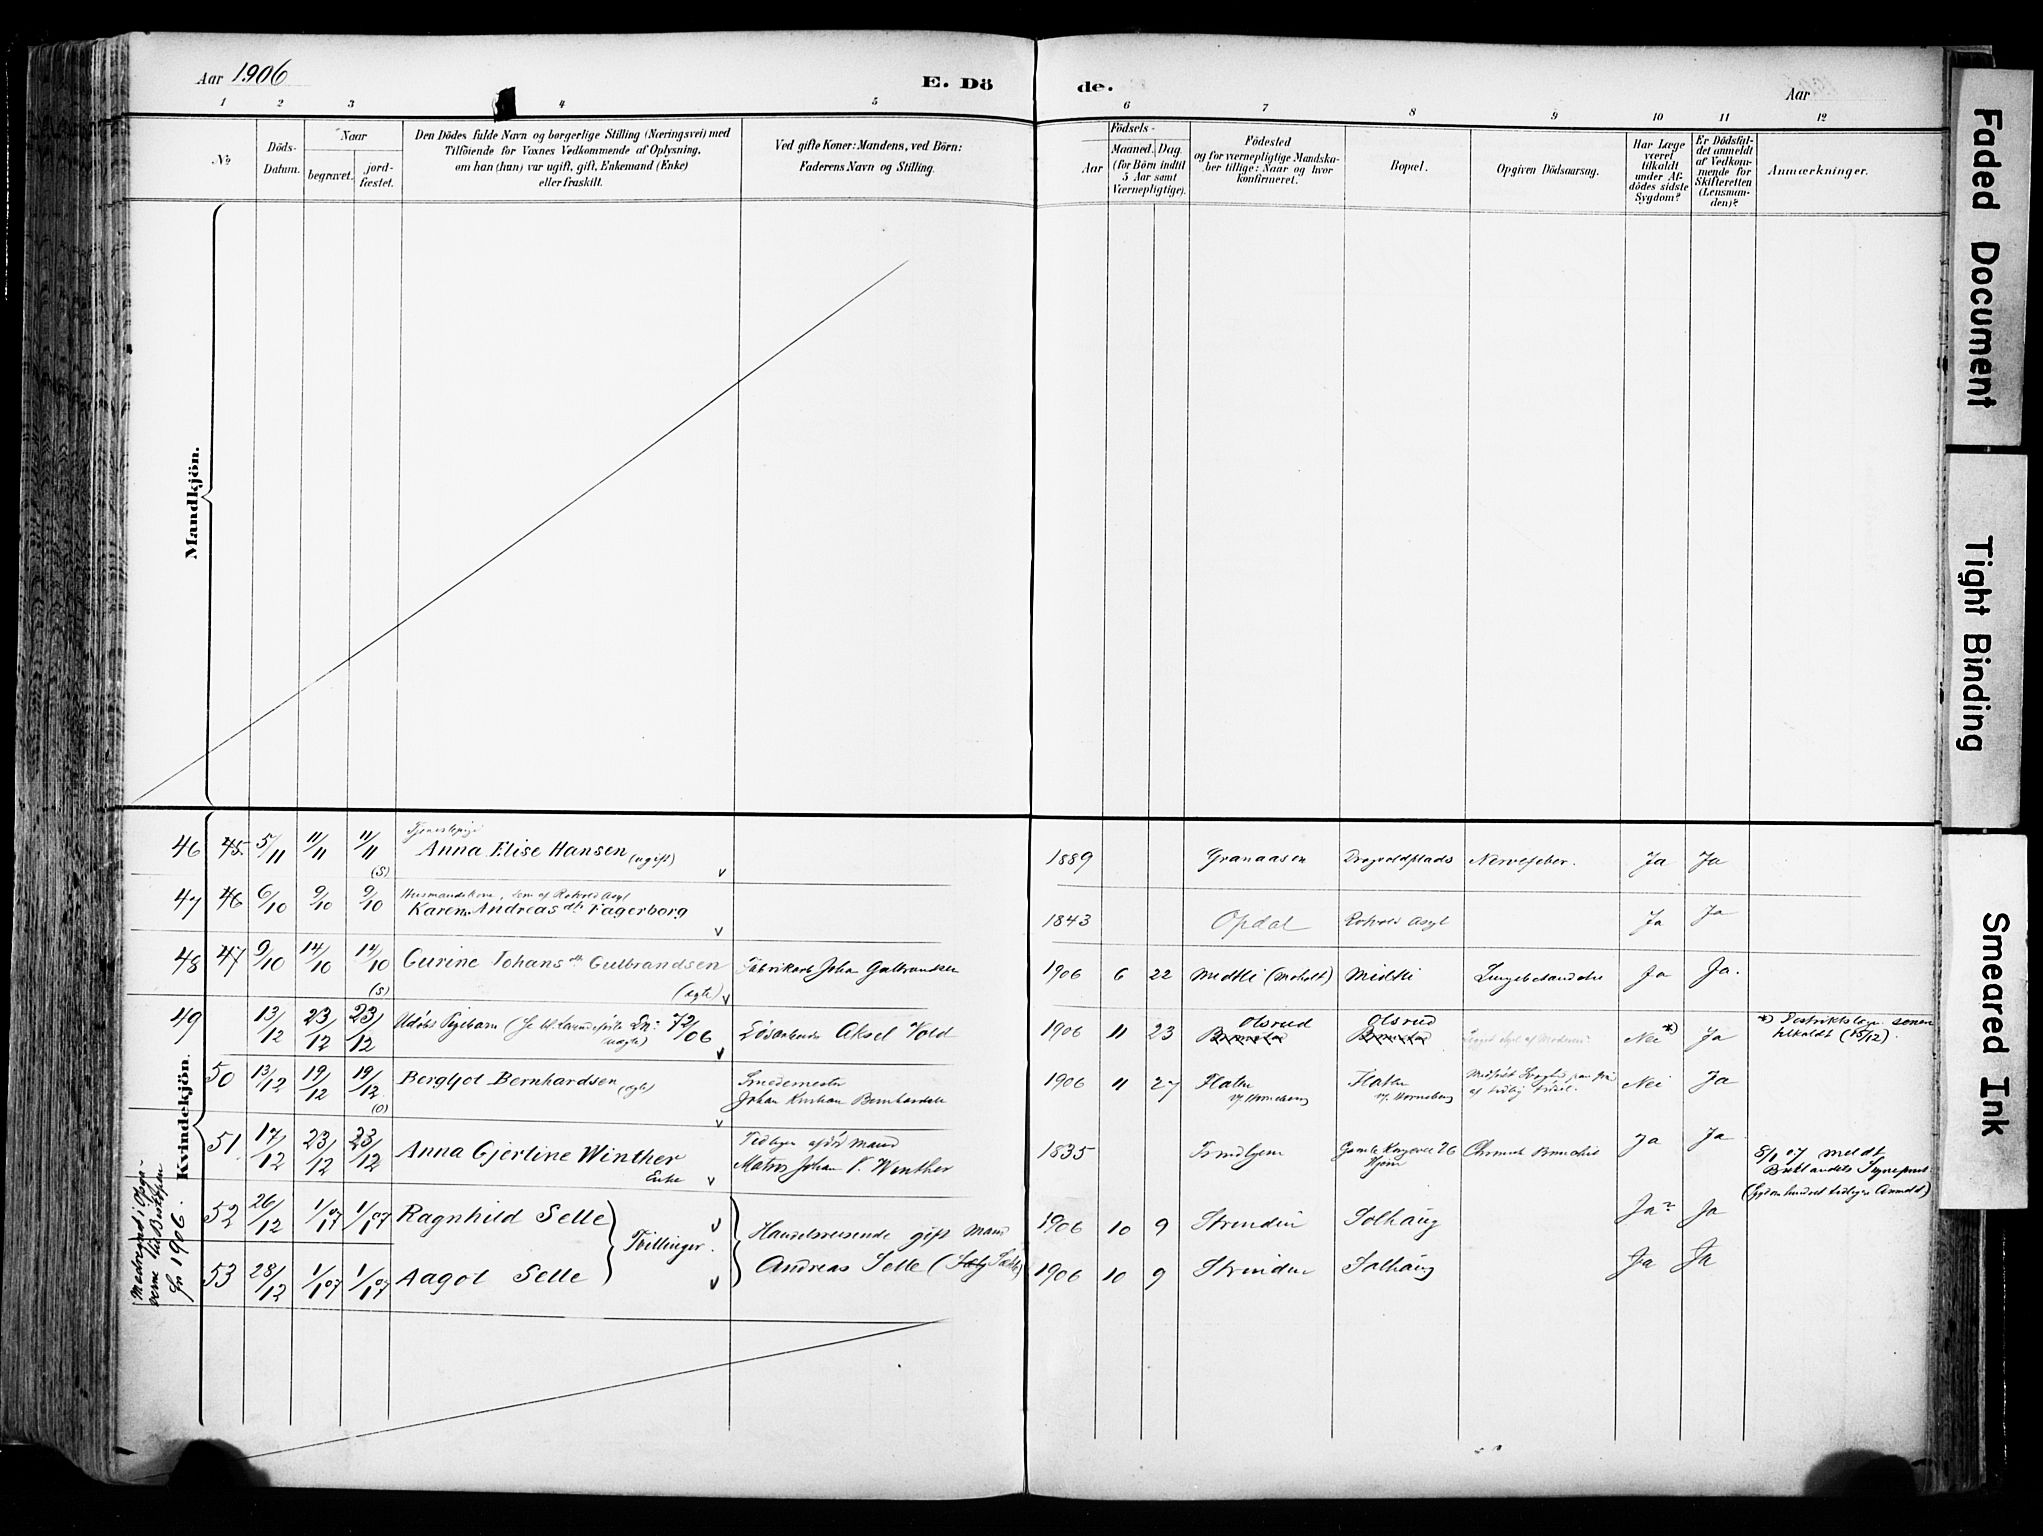 Aar 1906
E. Dö
de.
Aar
1 2 3 4 5 6 7 8 9 10 11 12
No
Döds-
Datum.
Naar
begravet.
jord-
fæstet.
Den Dödes fulde Navn og borgerlige Stilling (Næringsvei) med
Tilföiende for Voxnes Vedkommende af Oplysning,
om han (hun) var ugift, gift, Enkemand (Enke)
eller fraskilt.
Ved gifte Koner: Mandens, ved Börn:
Faderens Navn og Stilling.
Födsels-
Aar
Maaned. Dag
(for Börn indtil
5 Aar samt
Værnepligtige).
Födested
og for værnepligtige Mandska-
ber tillige: Naar og hvor
konfirmeret.
Bopæl.
Opgiven Dödsaarsag.
Har Læge
været
tilkaldt
under Af-
dödes sidste
Sygdom?
Er Dödsfal-
det anmeldt
af Vedkom-
mende for
Skifteretten
(Lensman-
den)?
Anmærkninger.
Mandkjön.
Kvindekjön.
Tjenestepige
46 45. 5/11 11/11 11/11 (S) Anna Elise Hansen (ugift) 1889 Granaasen Dragvoldplads Nervefeber. Ja Ja
Husmandskone, Lem af Rotvold Asyl
47 46 6/10 9/10 9/10 Karen Andreas dtr Fagerborg 1843 Opdal Rotvold Asyl Ja Ja
48 47 9/10 14/10 14/10 (S) Gurine Johans dtr Gulbrandsen (ægte) Fabrikarb Johan Gulbrandsen 1906 6 22 Medtli (Moholt) Midtli Lungebetændelse Ja Ja.
49 13/12 23/12 23/12 Udöbt Pigebarn (uægte) No 72/06 Lösarbeider Aksel Vold 1906 11 23 Olsrud Olsrud Nei *) Ja
*) Distriktslægen senere
tilkaldt (15/12).
50 13/12 19/12 19/12 (O) Bergljot Bernhardsen (ægte) Smedemester
Johan Kristian Bernhardsen 1906 11 27 Flaten
v/ Horneberg Flaten
v/ Horneberg Nei Ja
51 17/12 23/12 23/12 Anna Gjertine Winther
Enke
Tidligere afdöd Mand
Matros Johan P. Winther 1835 Trondhjem Gamle Kongevei 76 Ja Ja
8/1 07 meldt
52 26/12 1/1 07 1/1 07 Ragnhild Selle 1906 10 9 Strinden Solhaug Ja Ja
Tvillinger.
Handelsreisende gift Mand
Andreas Selle
53 28/12 1/1 07 1/1 07 Aagot Selle 1906 10 9 Strinden Solhaug Ja Ja
Medregnet i Opga-
verne til Bispen
for 1906.
Faded Document
Tight Binding
Smeared Ink